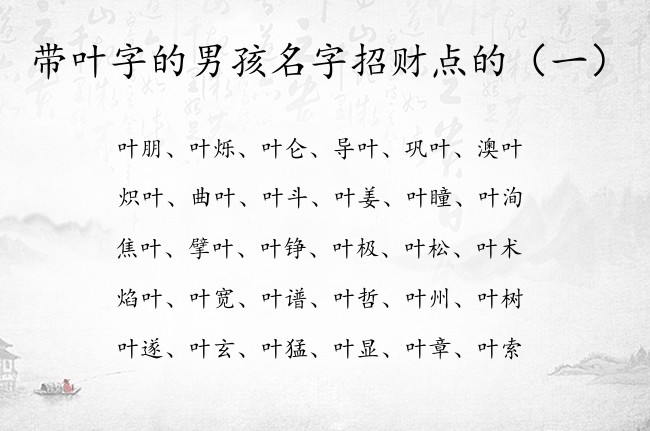 带叶字的男孩名字招财点的（一）
叶朋、叶烁、叶仑、导叶、巩叶、澳叶
炽叶、曲叶、叶斗、叶姜、叶瞳、叶洵
焦叶、擘叶、叶铮、叶极、叶松、叶术
焰叶、叶宽、叶谱、叶哲、叶州、叶树
叶遂、叶玄、叶猛、叶显、叶章、叶索